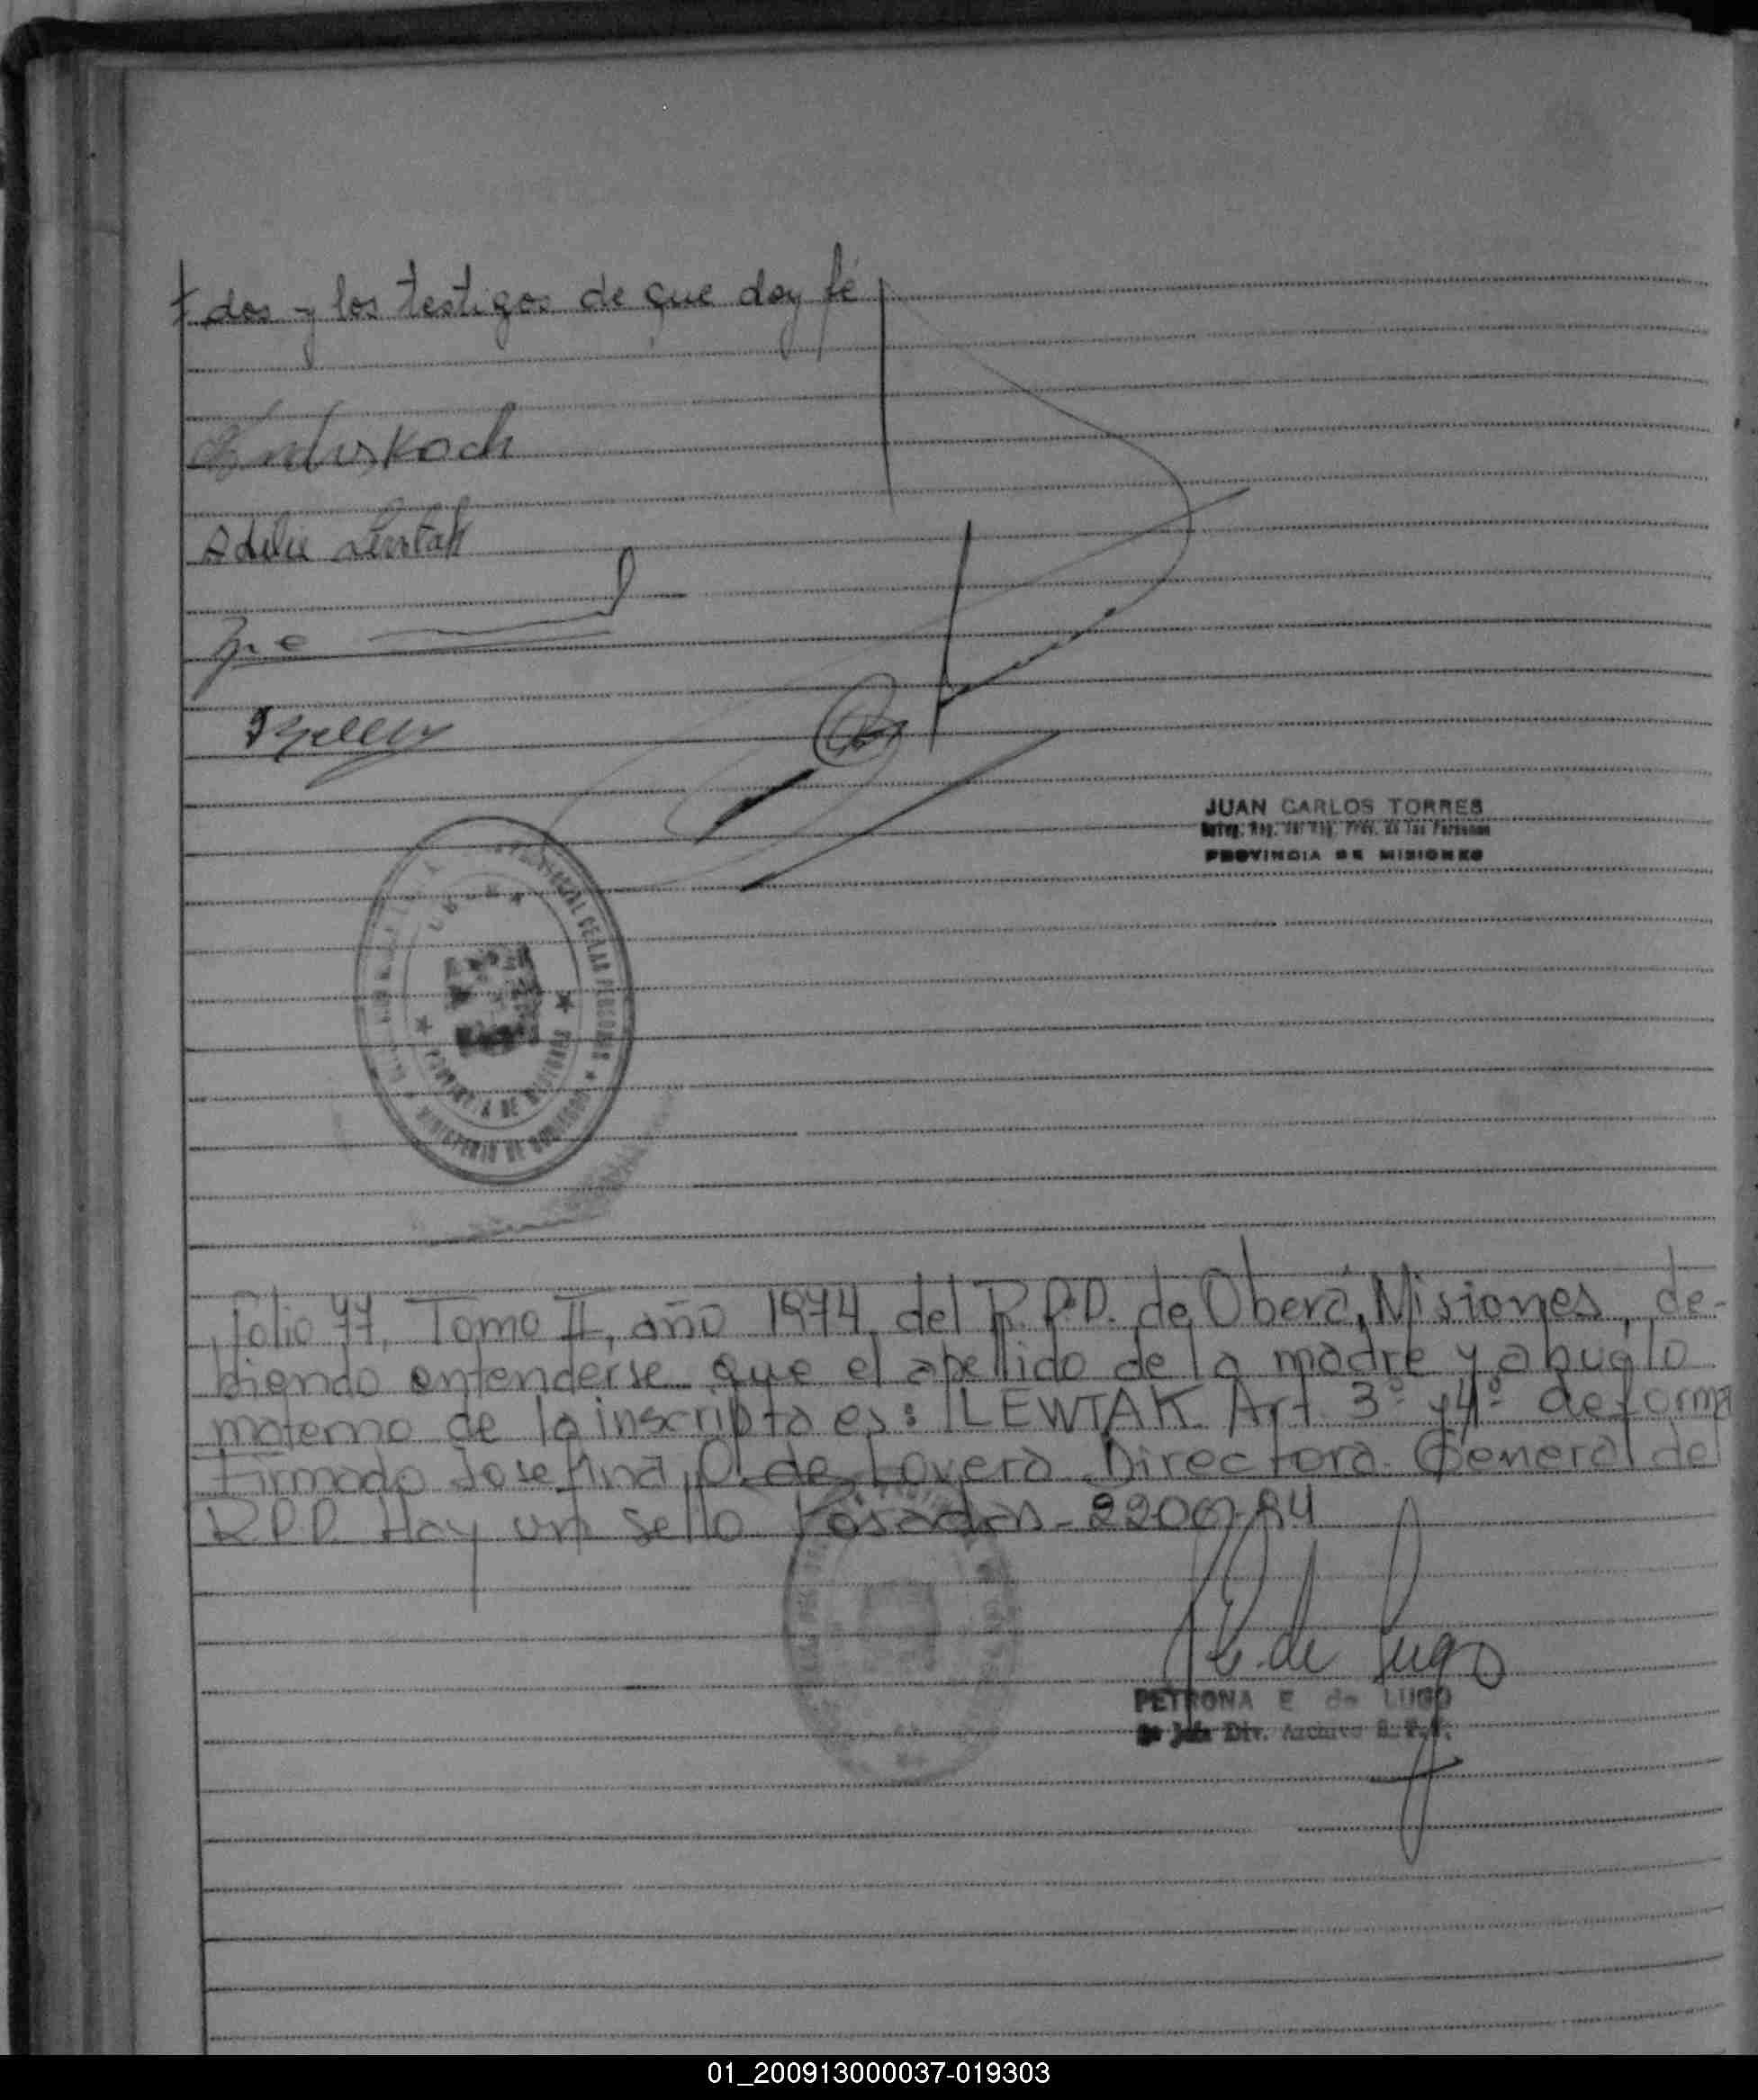 dos y los testigos de que doy fé
Adelia Lewtak
JUAN CARLOS TORRES
PROVINCIA DE MISIONES
PROVINCIAL DE LAS PERSONAS
PROVINCIA DE MISIONES
MINISTERIO DE GOBIERNO
folio 77, Tomo II, año 1974, del R.P.P. de Oberá, Misiones, de-
biendo entenderse que el apellido de la madre y abuelo
materno de la inscripta es: LEWTAK Art 3º y 4º de forma
Firmado Josefina O. de Lovera Directora General del
R.P.P. Hay un sello Posadas - 22-06-84
E. de Lugo
PETRONA E de LUGO
Jefe Div. Archivo R. P. P.
01_200913000037-019303